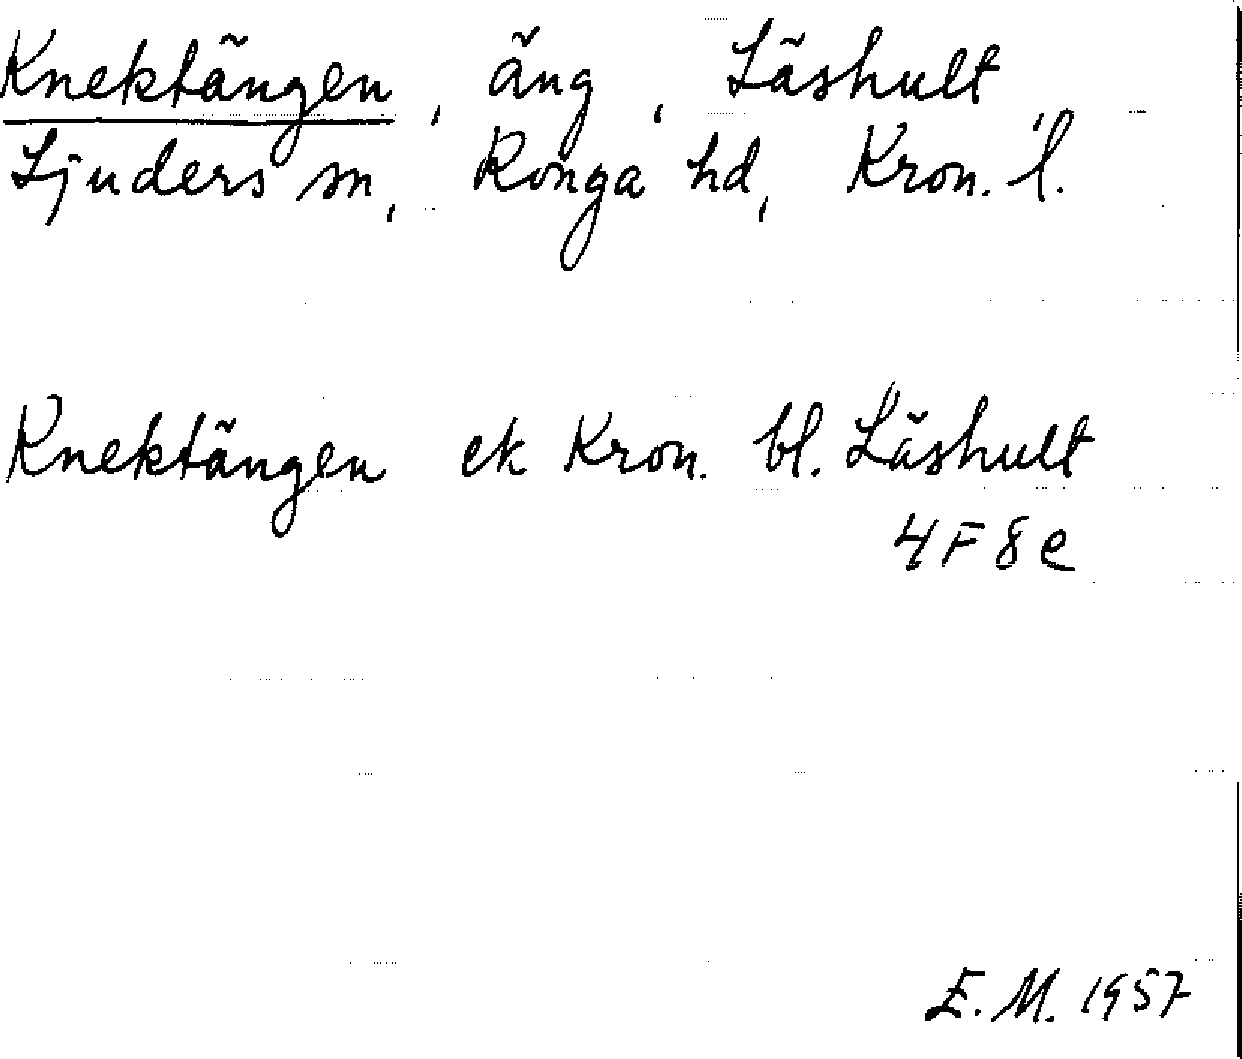 Knektängen, äng, Läshult,
Ljuders sn, Konga hd, Kron. l.
Knektängen ek Kron. bl. Läshult
4F8e
E.M. 1957